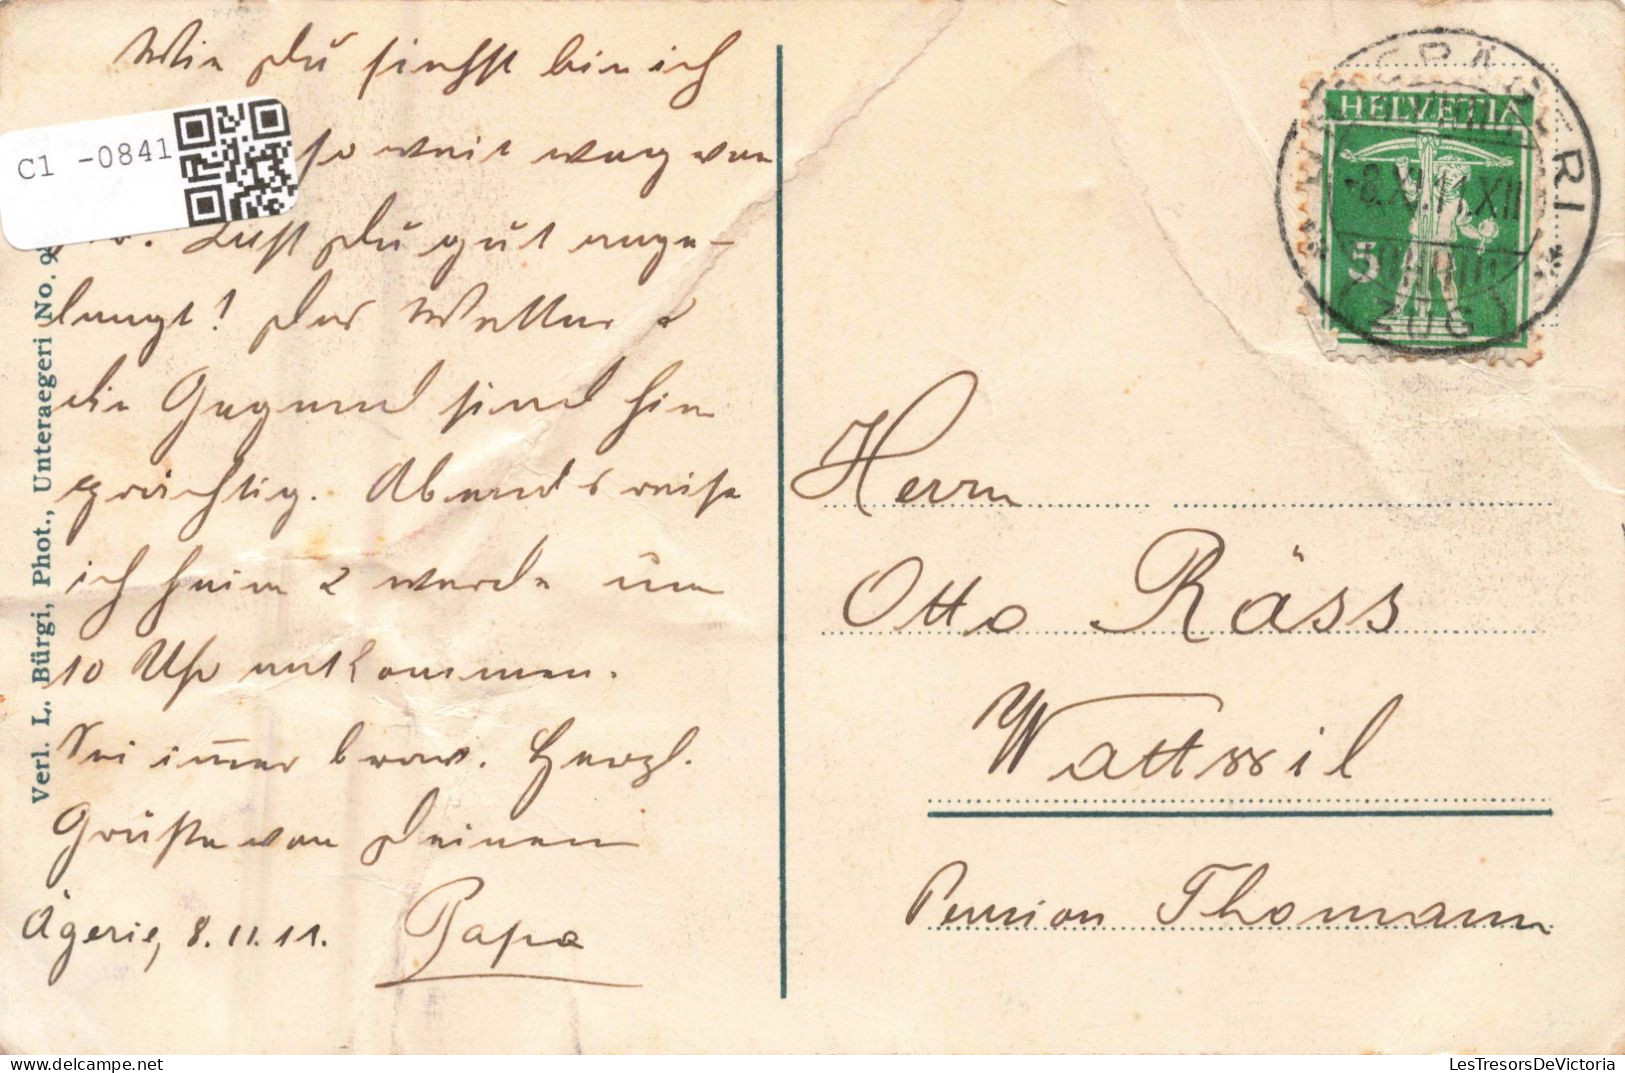 Wie Du siehst bin ich
so weit weg von
Bist Du gut ange-
langt! Das Wetter &
die Gegend sind hier
prächtig. Abends reise
ich heim & werde um
10 Uhr ankommen.
Sei immer brav. Herzl.
Grüße von Deinem
Ägerie, 8.11.11. Papa
Verl. L. Bürgi, Phot., Unteraegeri No.
C1 -0841
HELVETIA
5
-8.XI.11.XII
ZUG
Herrn
Otto Räss
Wattwil
Pension Thomann
LesTresorsDeVictoria